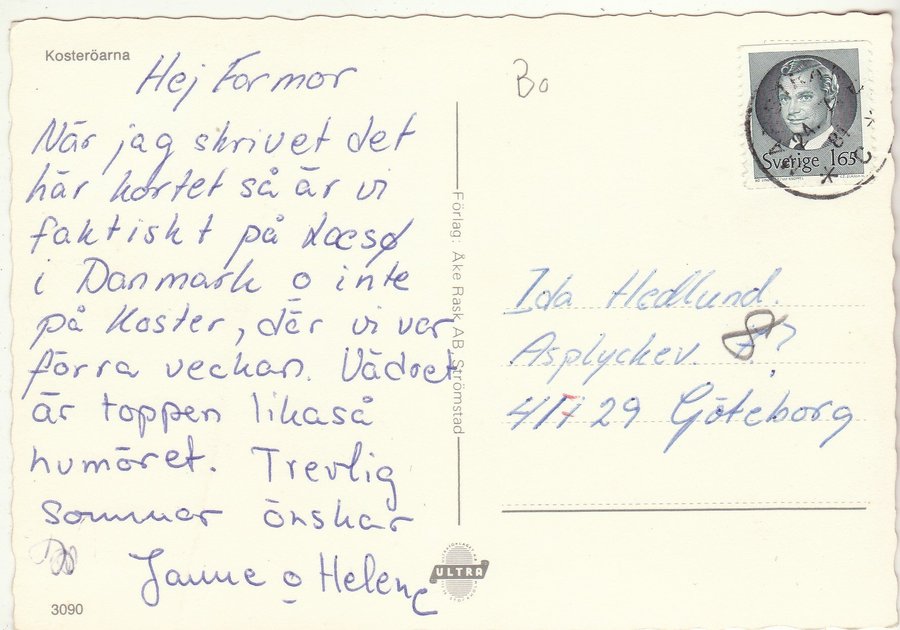 Kosteröarna
Hej Farmor
När jag skrivet det
här kortet så är vi
faktiskt på Læsø
i Danmark o inte
på Koster, där vi var
förra veckan. Vädret
är toppen likaså
humöret. Trevlig
Sommar önskar
Janne o Helene
3090
Förlag: Åke Rask AB, Strömstad
ULTRA
Bo
Sverige 165
24.
81
Ida Hedlund.
Asplyckev. 8
417 29 Göteborg